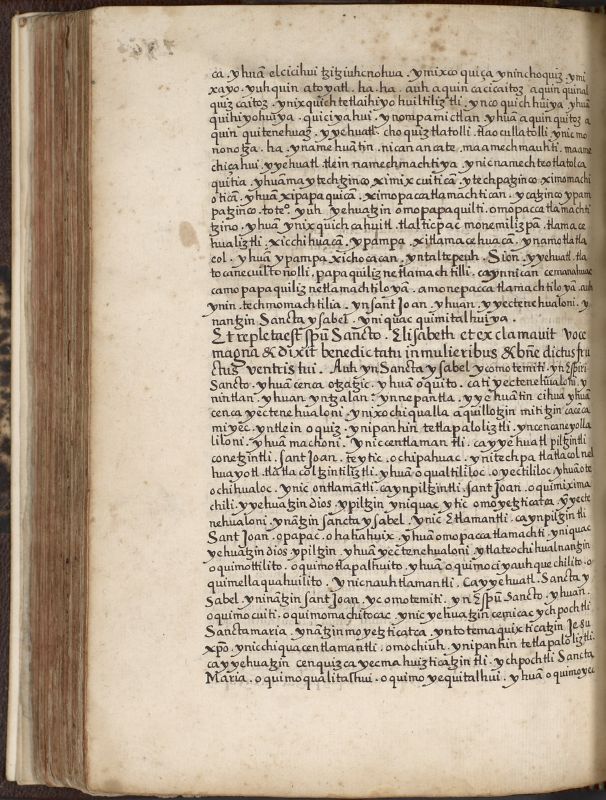 ca . yhuã elcicihui tzitziuhcnohua . ymixco quiça ynin choquiz . ymi
xayo . yuhquin atoyatl . ha . ha . auh aquin cacicaitoz aquin quinal
quiz caitoz . ynixquich tetlaihiyohuiltiliztli . ynco quichhuiya yhuã
quihiyohuiya . quiciyahui . ynompa mictlan . yhuã aquin quitoz a
quin quitenehuaz . yyehuatl choquiztlatolli . tlaocullatolli ynic mo
nonotza . ha . ynamehuãtin . nican ancate . maamechmauhti . maame
chiçahui . yyehuatl . tlein namechmachtiya . ynic namechteotlatolca
quitia . yhuã maytechtzinco ximixcuiticã . ytechpatzinco ximomachi
oticã . yhuã xipapaquicã . ximopaccatlamachtican . ycatzinco ypam
patzinco . toteº . yuh yehuatzin omopapaquilti . omopaccatlamachti
tzino . yhuã ynixquich cahuitl . tlalticpac monemilizpã . tlamace
hualiztli . xicchihuacã . ypampa . xitlamacehuacã . ynamotlatla
col . yhuã ypampa xichocacan . yntaltepeuh . Sion . yyehuatl . tla
tocanecuiltonolli , papaquiliznetlamachtilli . caynnican cemanahuac
camo papaquiliznetlamachtiloyã . amo nepaccatlamachtiloyã . auh
ynin . techmomachtilia . ynsant Joan . yhuan . yyectenehualoni . y
nantzin Sancta ysabel . yniquac quimitalhuiya .
Et repleta est spũ Sancto . Elisabeth et exclamauit voce
magna & dixit benedicta tu in mulieribus & bñe dictus fru
ctus ventris tui . Auh yn Sancta ysabel ycomotemiti . yn Espiri
Sancto . yhuã cenca otzatzic . yhuã oquito . ca tiyectenehualoni . y
nintlan . yhuan yntzalan . ynnepantla . yyehuãtin cihua yhuã
cenca yectenehualoni . ynixochiqualla aquillotzin mititzin cacẽca
miyec . yntlein oquiz . ynipanhin tetlapaloliztli . yncencaneyolla
liloni . yhuã machoni . ynic centlamantli . ca yyehuatl piltzintli
conetzintli . sant Joan . teytic . ochipahuac . ynitechpa tlatlacolnel
huayotl . tlãtlacoltzintiliztli . yhuã oqualtililoc . oyectililoc . yhuã ote
ochihualoc . ynic ontlamãtli . caynpiltzintli . sant Joan . oquimiximã
chili . yyehuatzin dios ypiltzin yniquac ytic omoyetzticatca . yyecte
nehualoni . ynãtzin sancta ysabel . ynic Etlamantli . caynpiltzintli
Sant Joan . opapac . o hahahuix . yhuã omopaccatlamachti . yniquac
yehuãtzin dios ypiltzin . yhuã yectenehualoni . ytlatzochihualnantzin
oquimottilito . oquimotlapalhuito . yhuã oquimociyauhquechilito . o
quimellaquahuilito . ynicnauhtlamantli . Cayyehuatl . Sancta y
Sabel . yninãtzin sant Joan . yc omotemiti . yn Espũ Sancto . yhuan .
oquimocuiti . oquimomachitocac . ynic yehuatzin cemicac ychpochtli
Sancta maria . ynãtzin moyetzticatca . ynto temaquixticatzin Jesu
xpõ . ynicchiquacentlamantli . omochiuh . ynipanhin tetlapaloliztli .
ca yyehuatzin cenquizca yecmahuizticatzintli . ychpochtli Sancta
Maria . oquimoqualitalhui . oquimoyequitalhui . yhuã oquimoyec